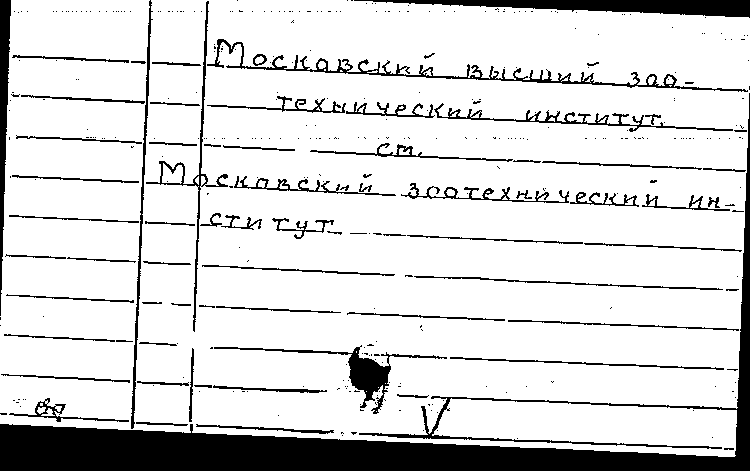 Московский высший зоо-
технический институт.
см.
Московский зоотехнический ин-
ститут
V